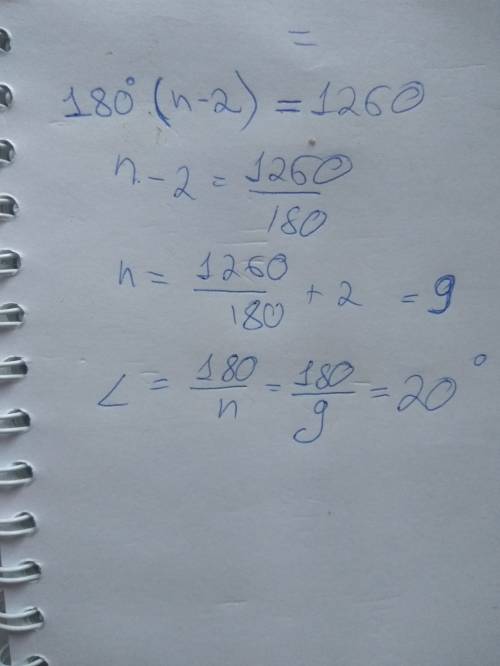 =
180° (n-2) = 1260
n - 2 = 1260/180
n = 1260/180 + 2 = 9
∠ = 180/n = 180/9 = 20°